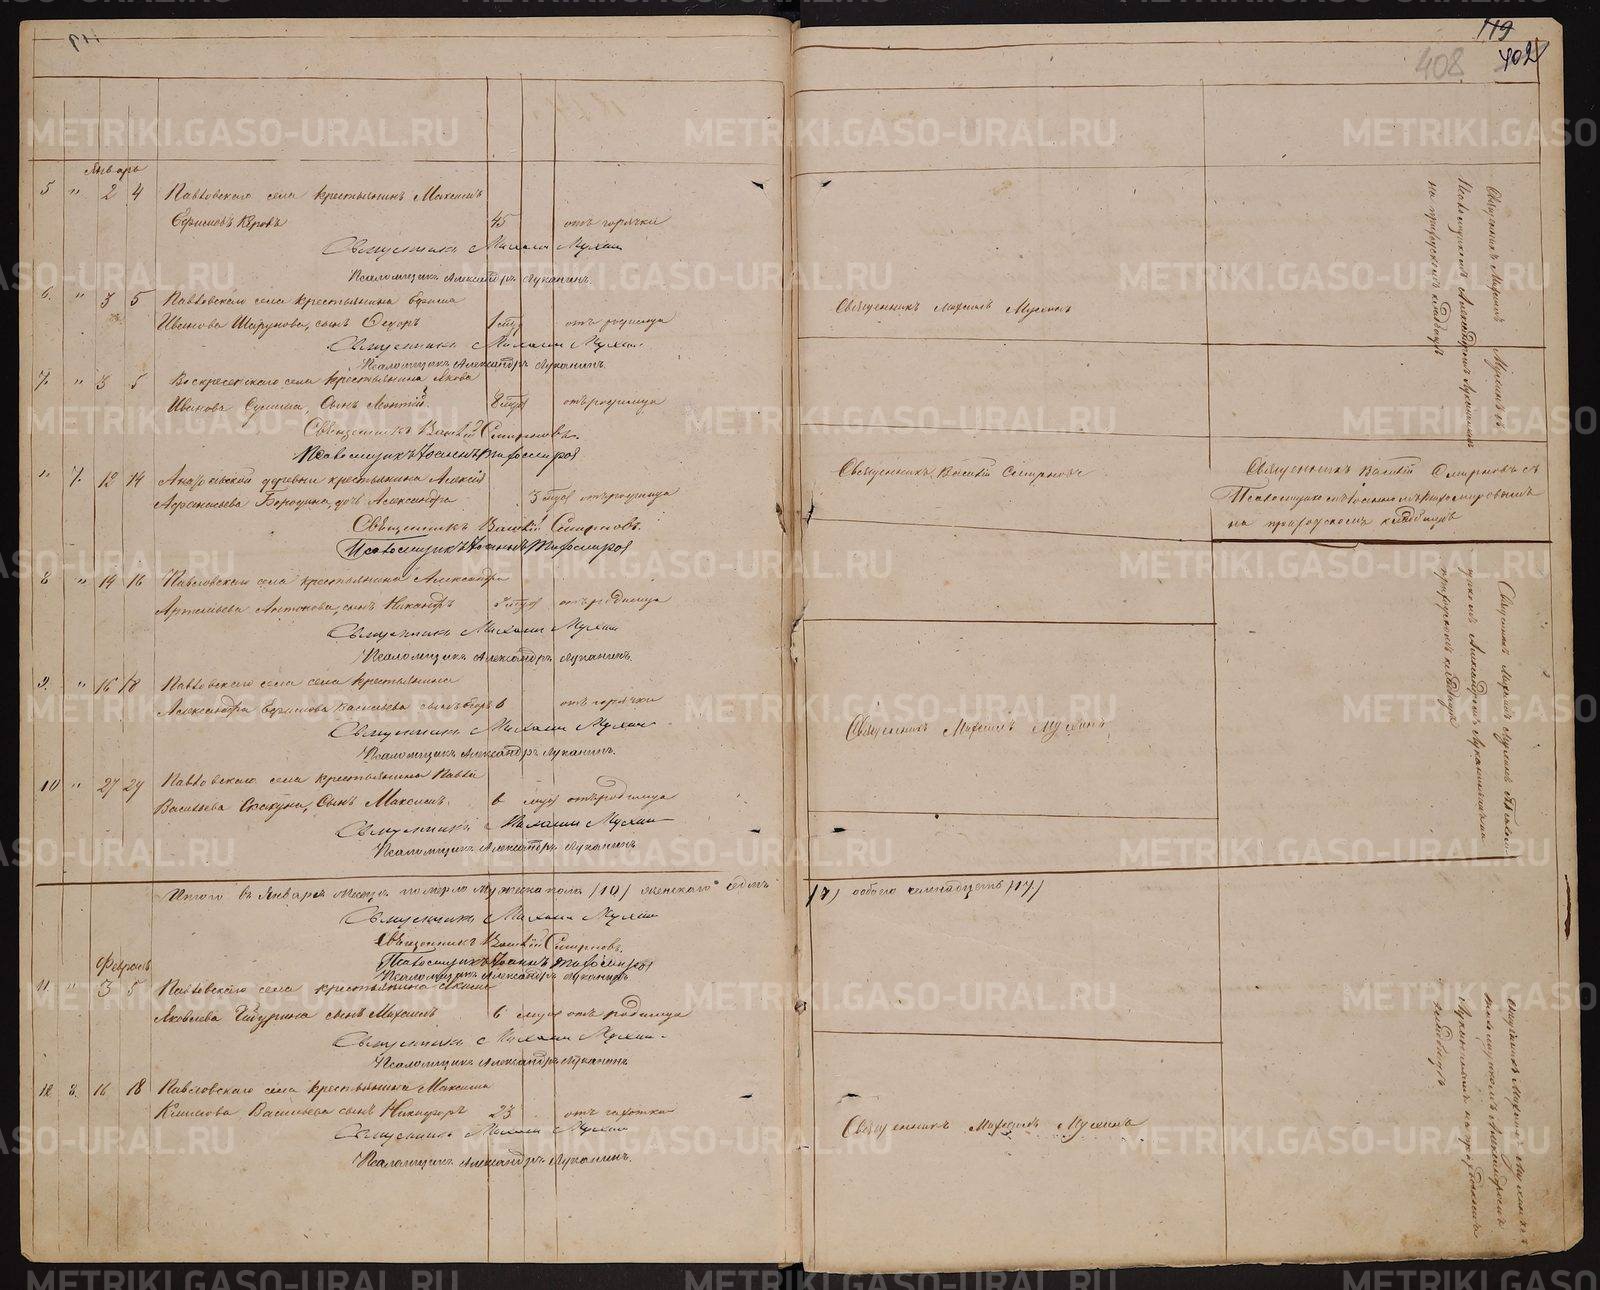 119
408
402
Январь
5 " 2 4 Павловского села крестьянинъ Максимъ
Ефимовъ 45 отъ горячки
Священникъ Михаилъ Мухинъ
Псаломщикъ Александръ Луканинъ.
6. " 3 5 Павловскаго села крестьянина Ефима
Иванова Шатунова, сынъ Федоръ отъ родимца
Священникъ Михаилъ Мухинъ
Псаломщикъ Александръ Луканинъ.
7. " 3 5 Воскресенскаго села крестьянина Якова
Иванова сынъ Леонтій. отъ родимца
Священникъ Василій Смирновъ.
Псаломщикъ Іоаннъ Тихомировъ
" 7. 12 14 деревни крестьянина Алексѣя
Афанасьева Бородина, дочь Александра 3 отъ родимца
Священникъ Василій Смирновъ.
Псаломщикъ Іоаннъ Тихомировъ
8 " 14 16 Павловскаго села крестьянина Александра
Артемьева Антонова, сынъ Никандръ отъ родимца
Священникъ Михаилъ Мухинъ
Псаломщикъ Александръ Луканинъ.
9. " 16 18 Павловскаго села села крестьянина
Александра Ефимова Васильева сынъ 6 отъ горячки
Священникъ Михаилъ Мухинъ
Псаломщикъ Александръ Луканинъ.
10 " 27 29 Павловскаго села крестьянина Павла
Васильева Скакуна, сынъ Максимъ. 6 отъ родимца
Священникъ Михаилъ Мухинъ
Псаломщикъ Александръ Луканинъ
Итого въ Январѣ месяцѣ померло мужеска пола (10) женскаго седмь
Священникъ Михаилъ Мухинъ
Священникъ Василій Смирновъ.
Псаломщикъ Іоаннъ Тихомировъ
Псаломщикъ Александръ Луканинъ
Февраль
11. " 3 5 Павловскаго села крестьянина
Яковлева сынъ Михаилъ 6 отъ родимца
Священникъ Михаилъ Мухинъ
Псаломщикъ Александръ Луканинъ
12 8. 16 18 Павловскаго села крестьянина Максима
Васильева сынъ Никифоръ 23 отъ чахотки
Священникъ Михаилъ Мухинъ
Псаломщикъ Александръ Луканинъ.
Священникъ Михаилъ Мухинъ
Священникъ Василій Смирновъ
Священникъ Михаилъ Мухинъ
(7) обоего семнадцеть (17)
Священникъ Михаилъ Мухинъ
Священникъ Михаилъ Мухинъ съ
Псаломщикомъ Александромъ Луканинымъ
на приходскомъ кладбищѣ
Священникъ Василій Смирновъ съ
Псаломщикомъ Іоанномъ Тихомировымъ
на приходскомъ кладбищѣ
Священникъ Михаилъ Мухинъ
Александромъ Луканинымъ на
приходскомъ кладбищѣ
Священникъ Михаилъ Мухинъ съ
псаломщикомъ Александромъ
Луканинымъ на приходскомъ
кладбищѣ
METRIKI.GASO-URAL.RU